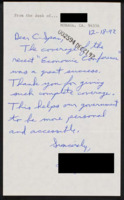 From the desk of...
12-18-93
Dear C-Span,
The coverage of the
recent "Economic Conference"
was a great success.
Thank you for giving
such complete coverage.
This helps our government
to be more personal
and accessible.
Sincerely,